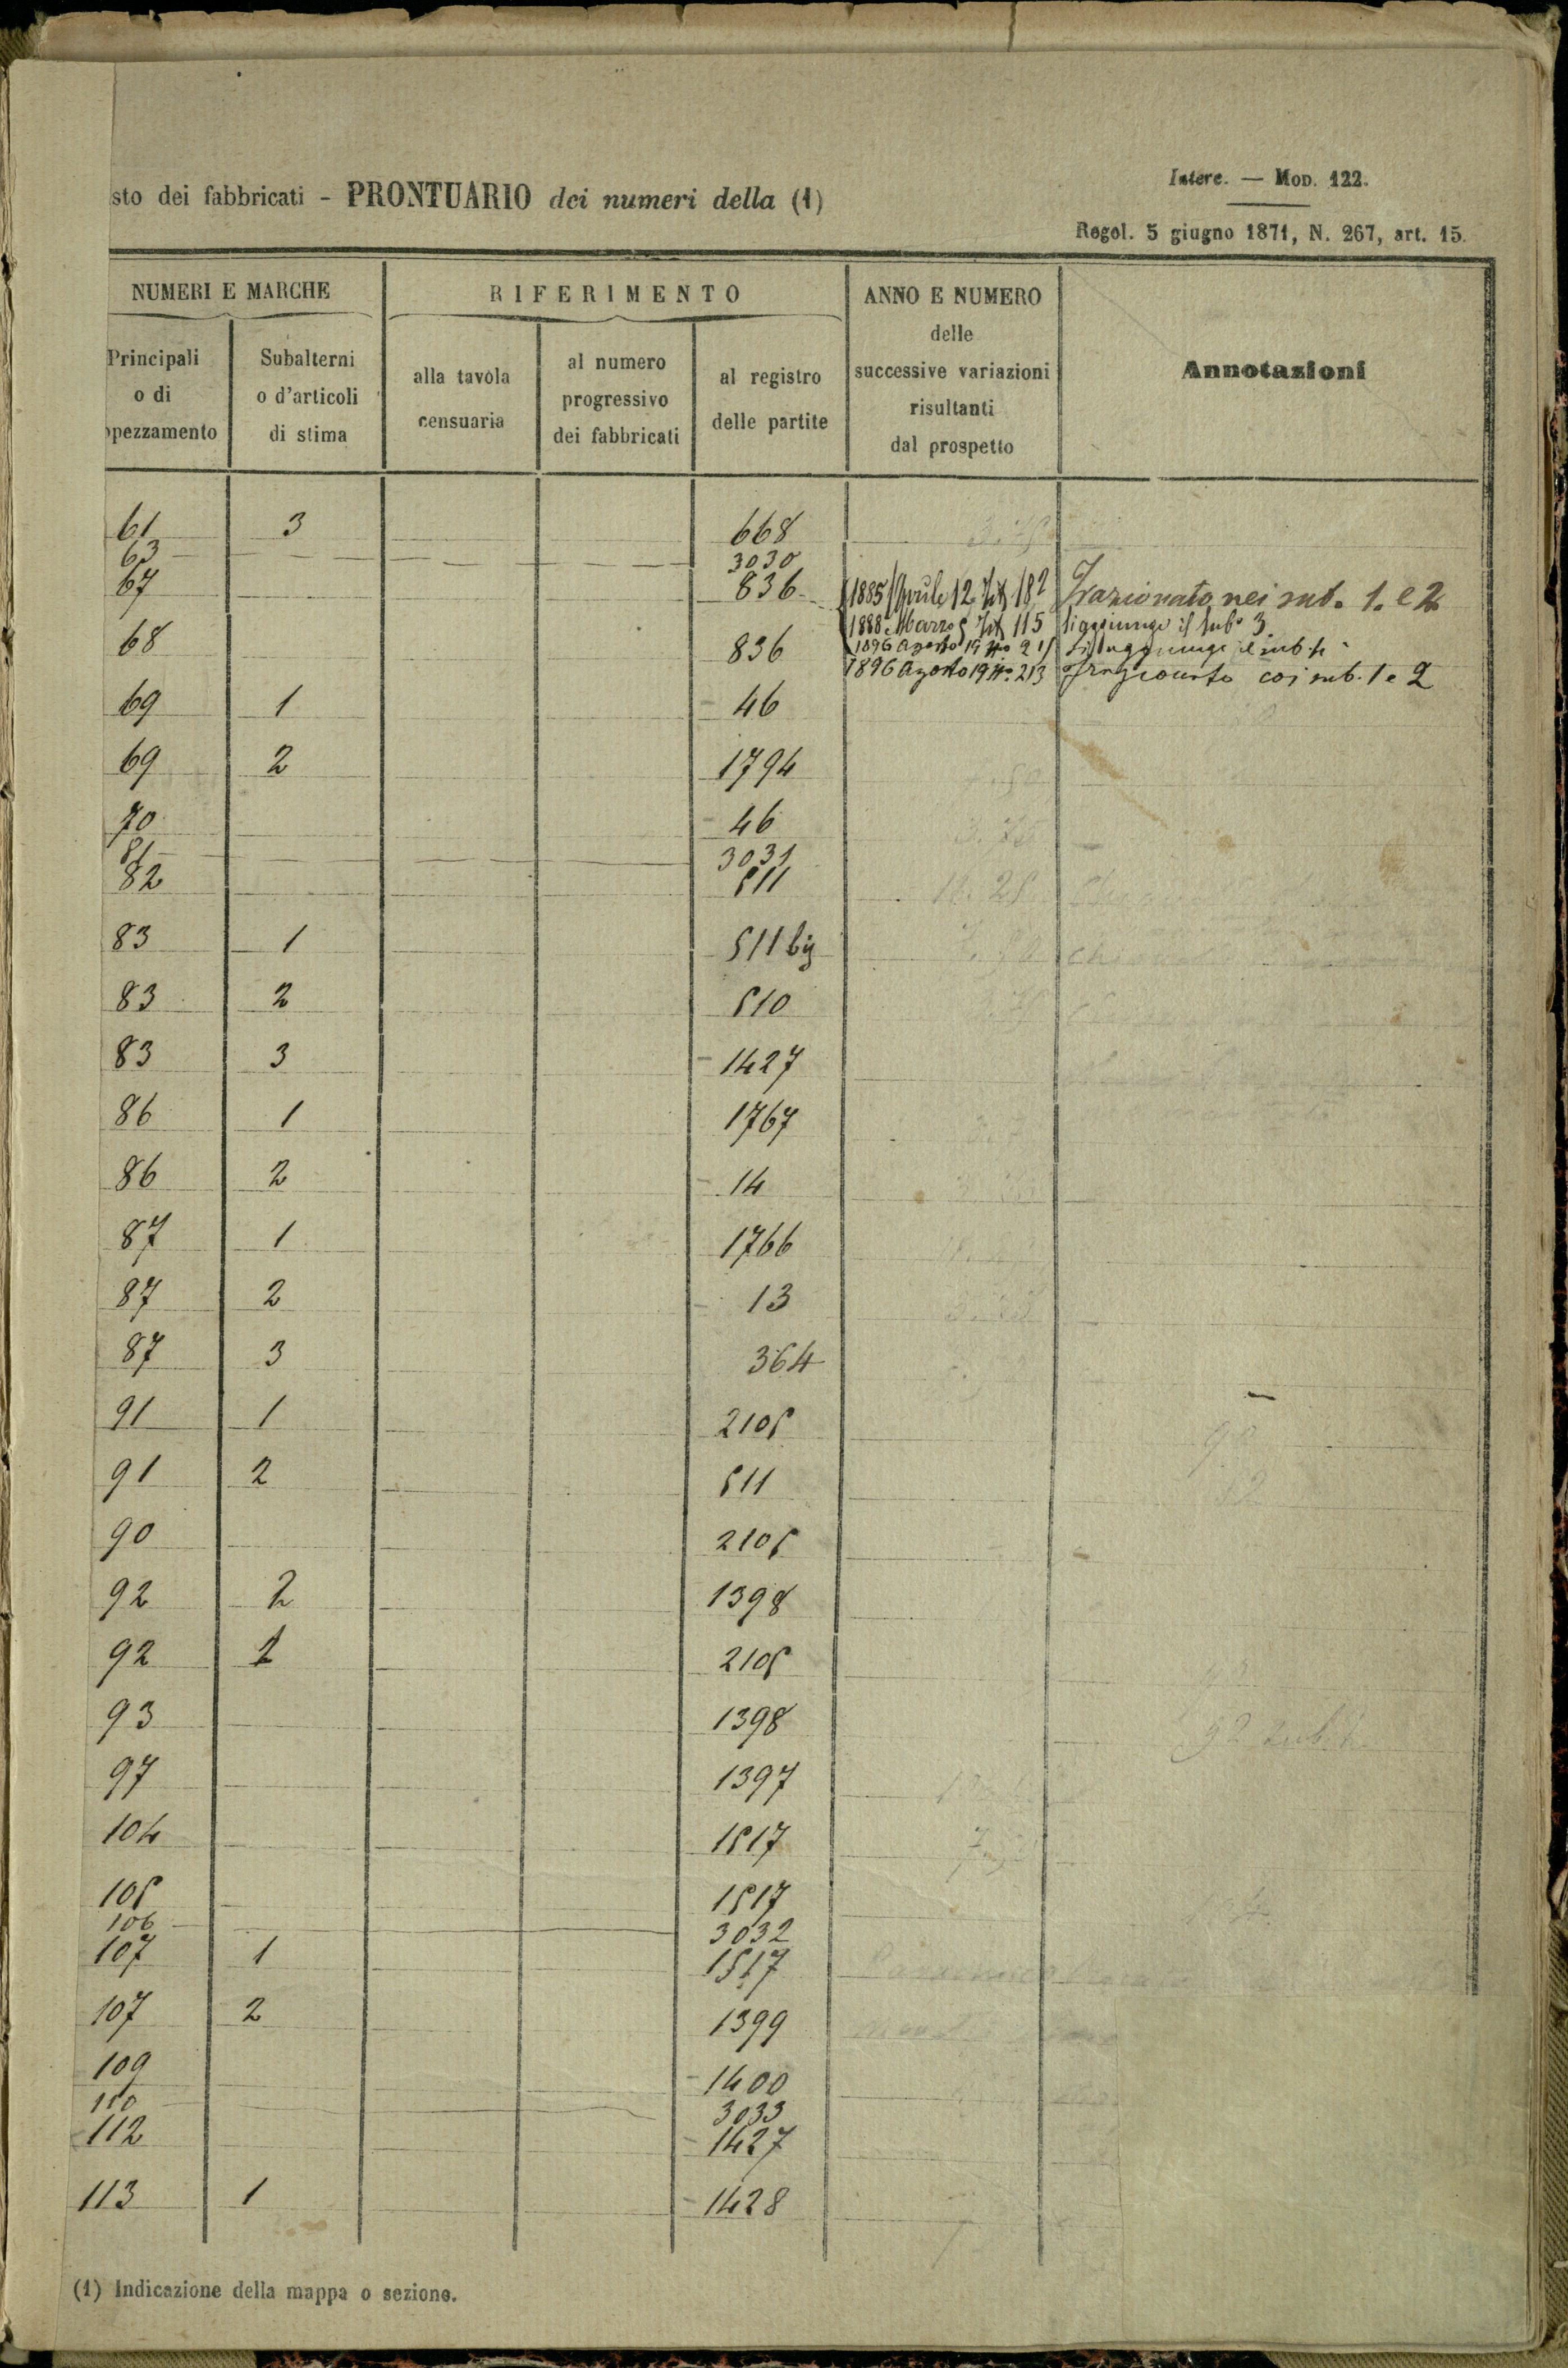 sto dei fabbricati - PRONTUARIO dei numeri della (1)
Intere. — Mod. 122.
Regol. 5 giugno 1871, N. 267, art. 15.
NUMERI E MARCHE
RIFERIMENTO
ANNO E NUMERO
delle
successive variazioni
risultanti
dal prospetto
Annotazioni
Principali
o di
ppezzamento
Subalterni
o d'articoli
di stima
alla tavola
censuaria
al numero
progressivo
dei fabbricati
al registro
delle partite
61 3 668
63 3030
67 836 1885 Aprile 12 182 Frazionato nei sub. 1. e 2
1888 Marzo 5 115 si aggiunge il sub. 3
68 836 1896 Agosto 19 No. si aggiunge il sub.
1896 Agosto 19 No. 213 Frazionato coi sub. 1 e 2
69 1 46
69 2 1794
70 46
81 3031
82 511
83 1 511 bis
83 2 510
83 3 1427
86 1 1767
86 2 14
87 1 1766
87 2 13
87 3 364
91 1 2105
91 2 511
90 2105
92 2 1398
92 1 2105
93 1398
97 1397
104 1517
105 1517
106 3032
107 1 1517
107 2 1399
109 1400
110 3033
112 1427
113 1 1428
(1) Indicazione della mappa o sezione.